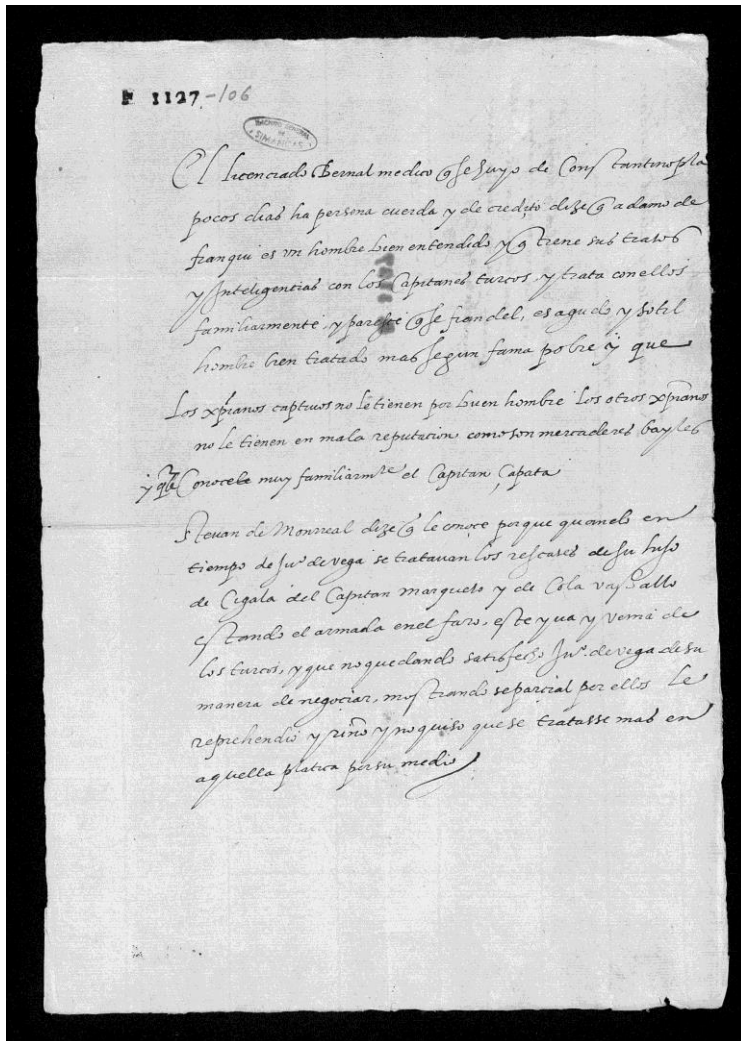 E 1127-106
ARCHIVO GENERAL
DE
SIMANCAS
El licenciado Bernal medico q̃ se huyo de Constantinopla
pocos dias ha persona cuerda y de credito dize q̃ adamo de
franqui es vn hombre bien entendido y q̃ tiene sus tratos
y Inteligencias con los Capitanes turcos, y trata con ellos
familiarmente, y paresçe q̃ se fian del, es agudo y sotil
hombre bien tratado mas segun fama pobre ÿ que
Los xp̃ianos captiuos no le tienen por buen hombre Los otros xp̃ianos
no le tienen en mala reputacion como son mercaderes bayles
y q̃ Conocele muy familiarmte el Capitan Çapata
Steuan de Monrreal dize q̃ le conoçe porque quando en
tiempo de Juº de vega se tratauan los rescates de su hijo
de Cigala del Capitan marqueto y de Cola vassallo
estando el armada en el faro, este yua y venia de
los turcos, y que no quedando satisfecho Juº de vega de su
manera de negociar, mostrandose parcial por ellos Le
reprehendio y riño y no quiso que se tratasse mas en
aquella platica por su medio